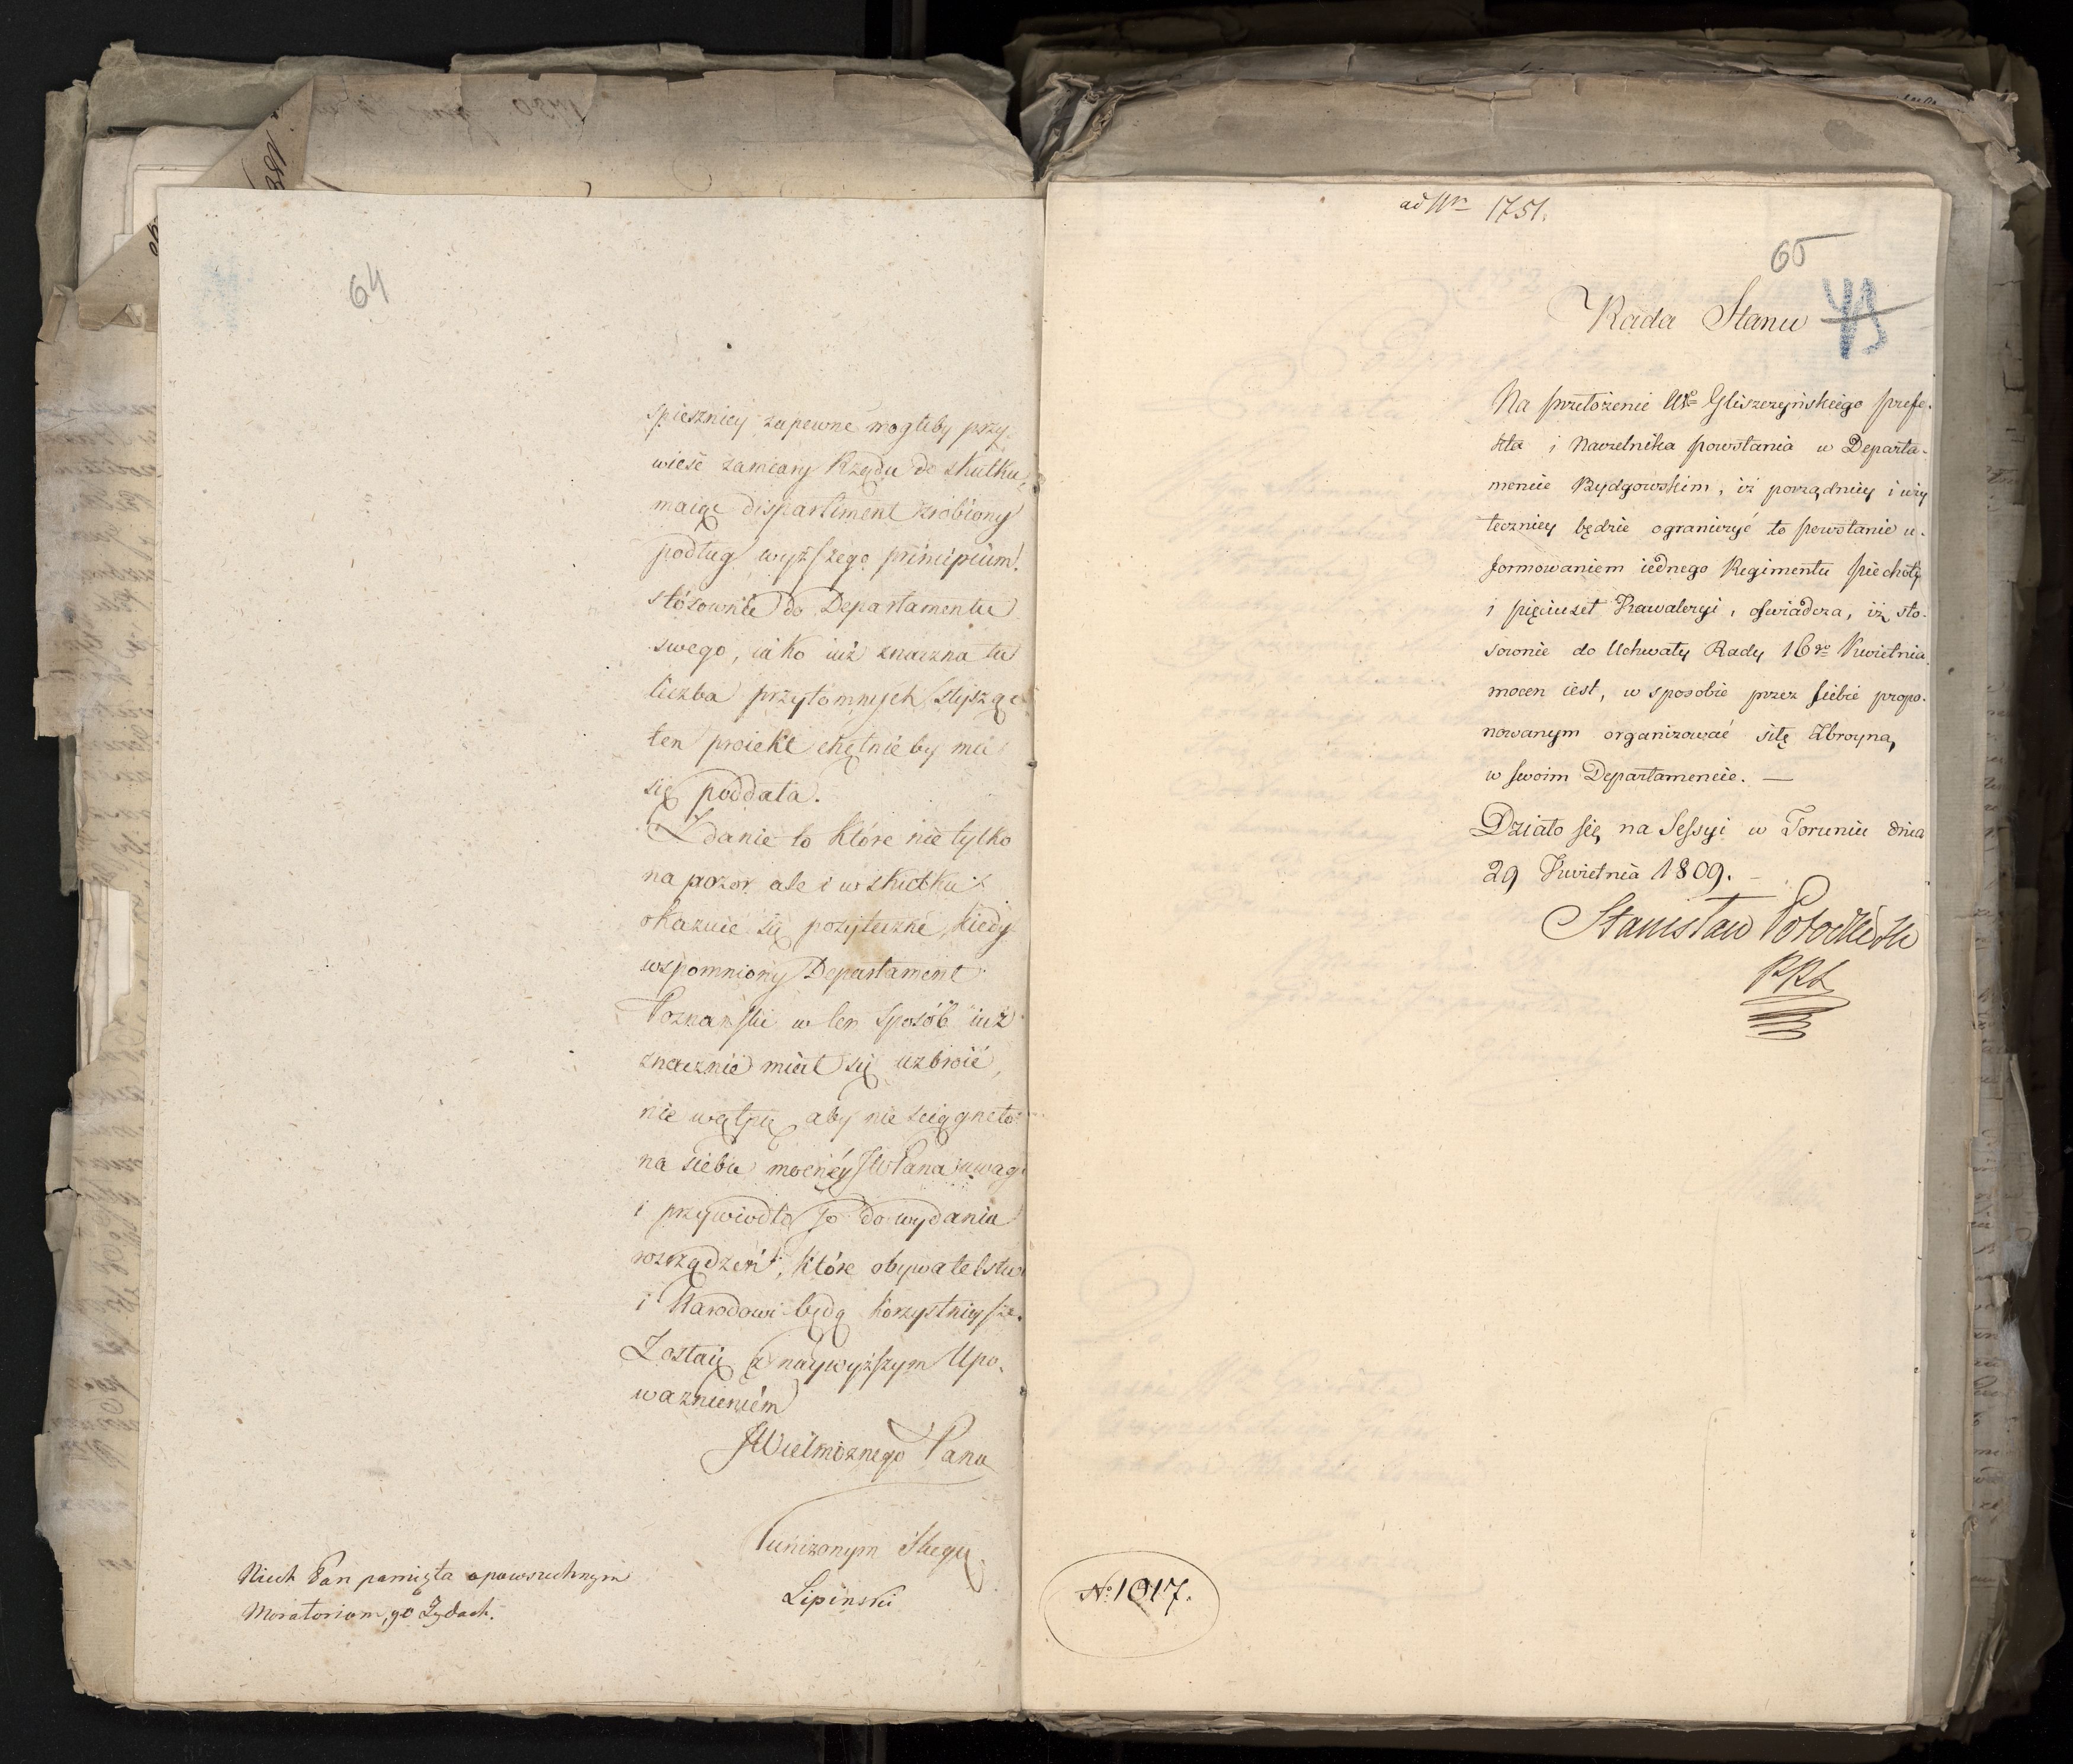 64
spieszniey zapewne mogłeby przy-
wieść zamiary Rządu do skutku,
maiąc dispartiment zrobiony
podług wyższego principium!
stósownie do Departamentu
swego, iako iuż znaczna tu
liczba przytomnych słysząc
ten proiekt chętnie by mu
się poddała.
Zdanie to które nie tylko
na pozor ale i w skutku
okazuie się pożyteczne, kiedy
wspomniony Departament
Poznański w ten sposób iuż
znacznie miał się uzbroić,
nie wątpię aby nie ściągneło
na siebie mocniéy JWPana uwagi
i przywiodło Jo do wydania
rozrządzeń, które obywatelstwu
i Narodowi będą korzystnieysze.
Zostaię z naywyższym Upo-
ważnieniém
JWielmożnego Pana
uniżonym sługą
Lipinski
Niech Pan pamięta o powszechnym
Moratorium, y o Żydach.
ad Nr 1751.
65
Rada Stanu
Na przełożenie Wgo Gliszczyńskiego prefe-
kta i Naczelnika powstania w Departa-
mencie Bydgowskim, iż porządniey i uży
teczniey będzie ograniczyć to powstanie u-
formowaniem iednego Regimentu piechoty
i pięciuset Kawaleryi, oświadcza, iż sto-
sownie do Uchwały Rady 16go Kwietnia
mocen iest, w sposobie przez siebie propo-
nowanym organizować siłę Zbroyną,
w swoim Departamencie. —
Działo się na Sessyi w Toruniu dnia
29 Kwietnia 1809. —
Stanisław Potocki
No 1017.